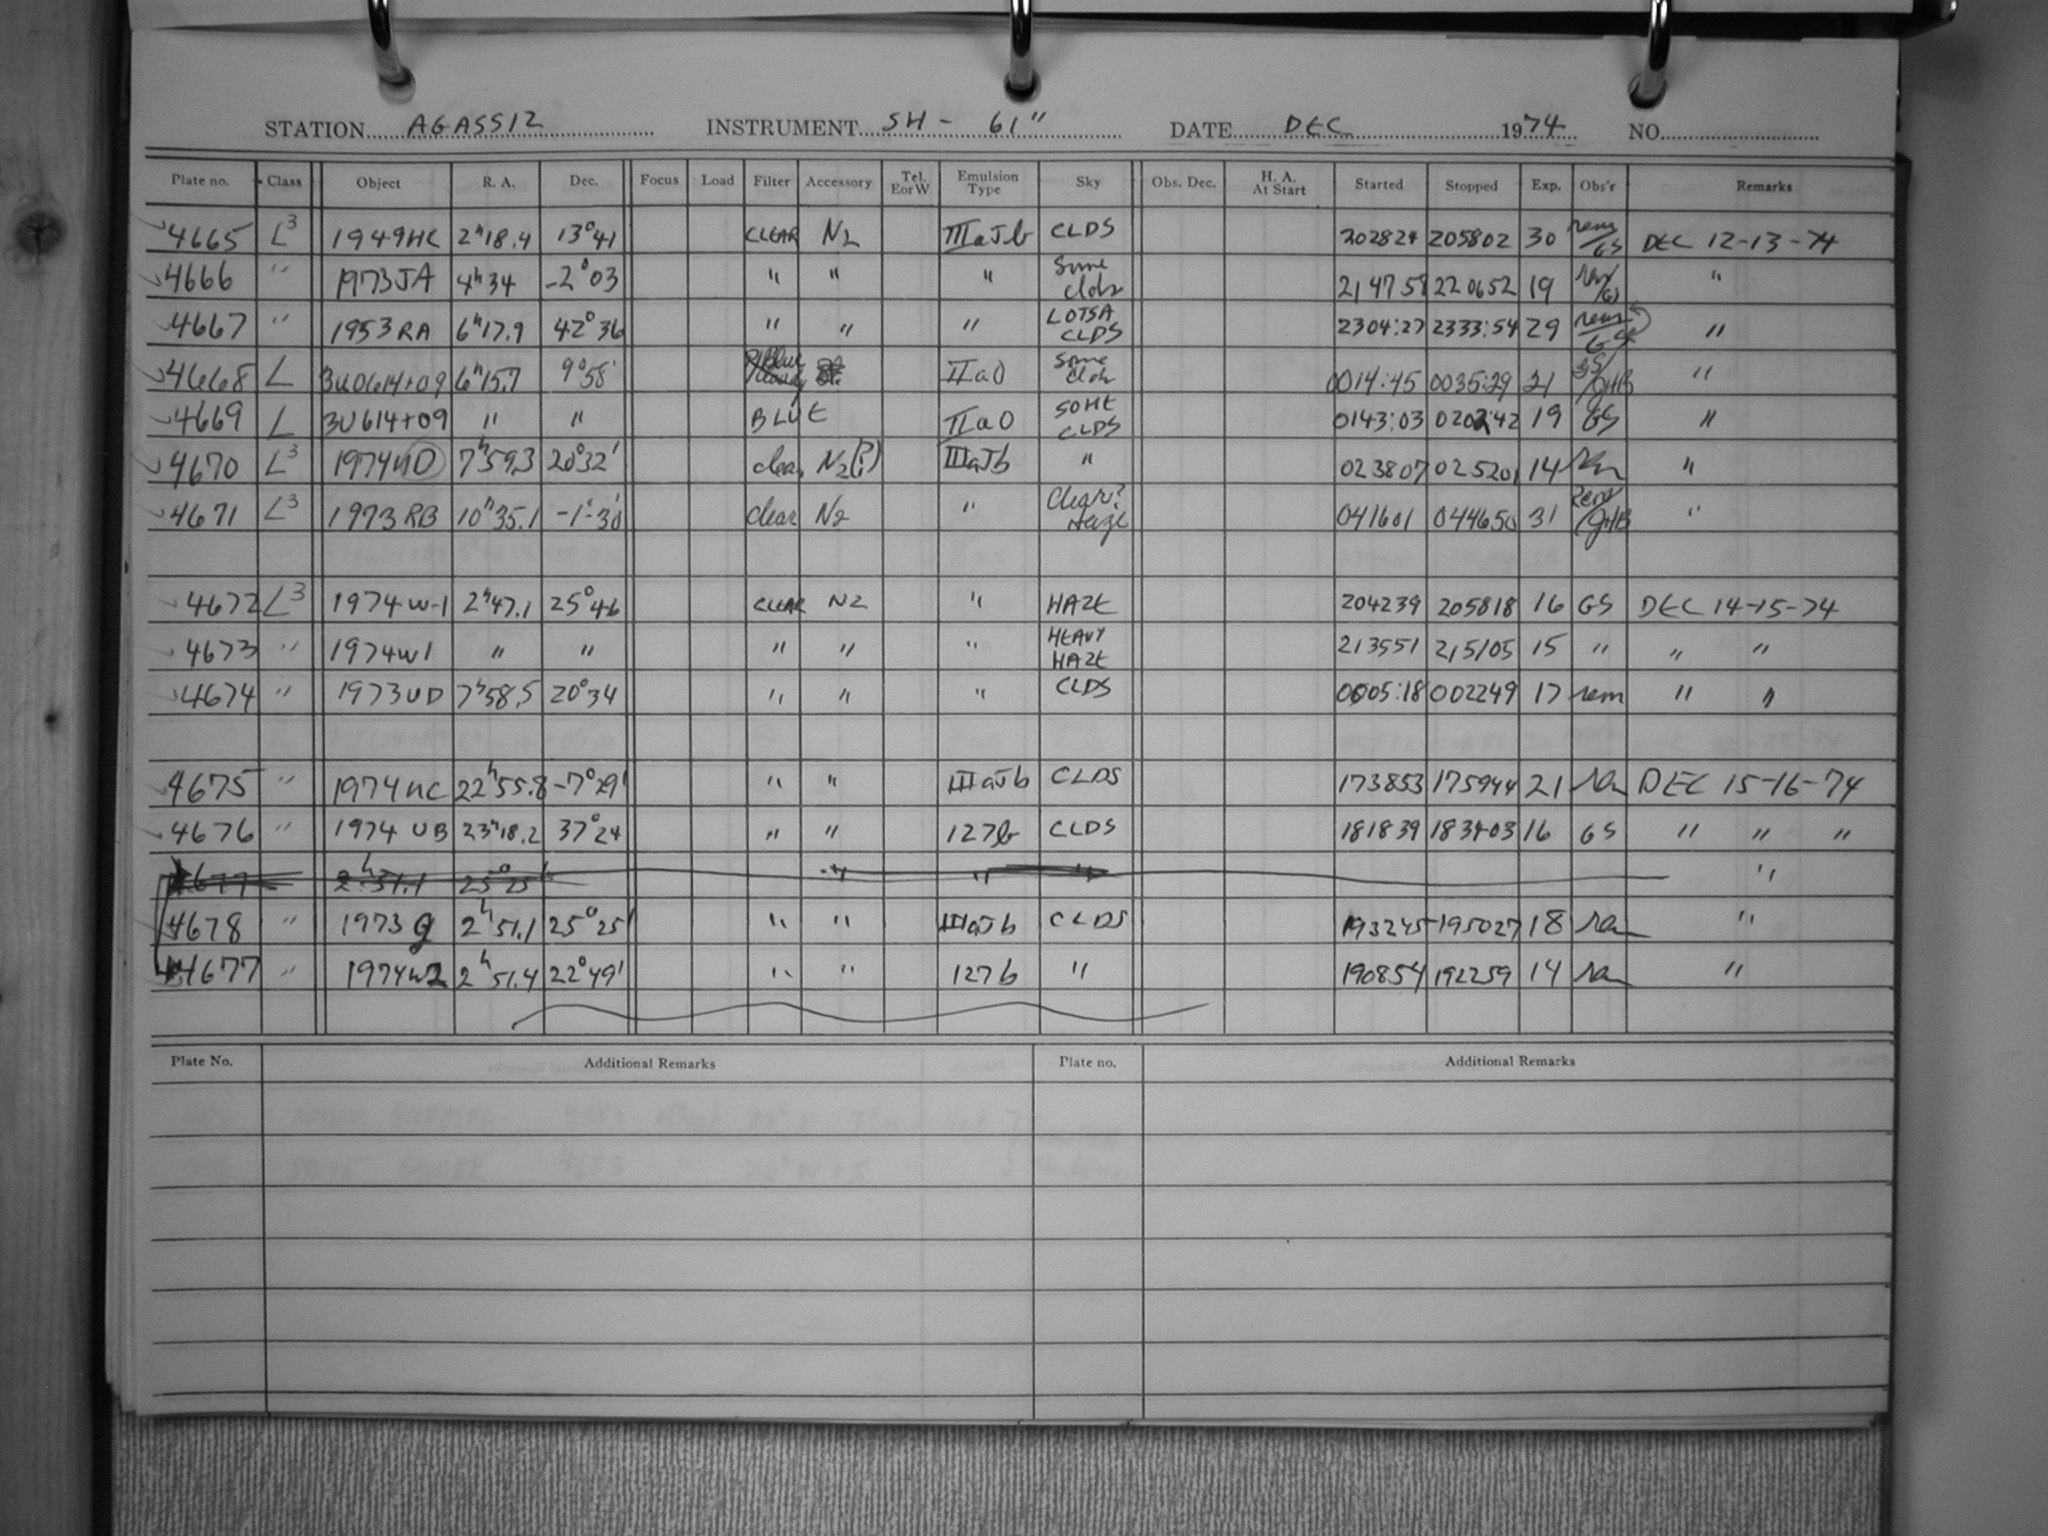 STATION AGASSIZ INSTRUMENT SH - 61" DATE DEC 1974 NO.
Plate no. Class Object R. A. Dec. Focus Load Filter Accessory Tel. E or W Emulsion Type Sky Obs. Dec. H. A. At Start Started Stopped Exp. Obs'r Remarks
4665 L3 1949HC 2h18.4 13°41 CLEAR N2 IIIaJb CLDS 202824 205802 30 rem/GS DEC 12-13-74
4666 " 1973JA 4h34 -2°03 " " " Some clds 214758 220652 19 rem/GS "
4667 " 1953RA 6h17.9 42°36 " " " LOTSA CLDS 2304:27 2333:54 29 rem/GS "
4668 L 3U0614+09 6h15.7 9°58' IIaO Some clds 0014:45 0035:29 21 GS/JHB "
4669 L 3U614+09 " " BLUE IIaO SOME CLDS 0143:03 0202:42 19 GS "
4670 L3 1974UD 7h59.3 20°32' clear N2(?) IIIaJb " 023807 025201 14 rem "
4671 L3 1973RB 10h35.1 -1°30' clear N2 " Clear? Haze 041601 044650 31 rem/JHB "
4672 L3 1974W-1 2h47.1 25°46 CLEAR N2 " HAZE 204239 205818 16 GS DEC 14-15-74
4673 " 1974W1 " " " " " HEAVY HAZE 213551 215105 15 " " "
4674 " 1973UD 7h58.5 20°34 " " " CLDS 0005:18 002249 17 rem " "
4675 " 1974UC 22h55.8 -7°29' " " IIIaJb CLDS 173853 175944 21 rem DEC 15-16-74
4676 " 1974UB 23h18.2 37°24 " " 127b CLDS 181839 183403 16 GS " " "
4677 2h51.1 25°25' " " " "
4678 " 1973g 2h51.1 25°25' " " IIIaJb CLDS 193245 195027 18 rem "
4677 " 1974W2 2h51.4 22°49' " " 127b " 190854 192259 14 rem "
Plate No. Additional Remarks Plate no. Additional Remarks